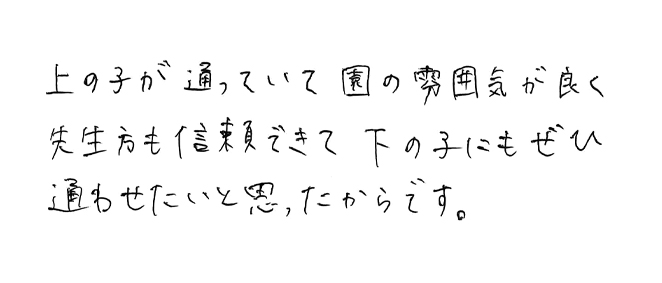 上の子が通っていて園の雰囲気が良く
先生方も信頼できて下の子にもぜひ
通わせたいと思ったからです。